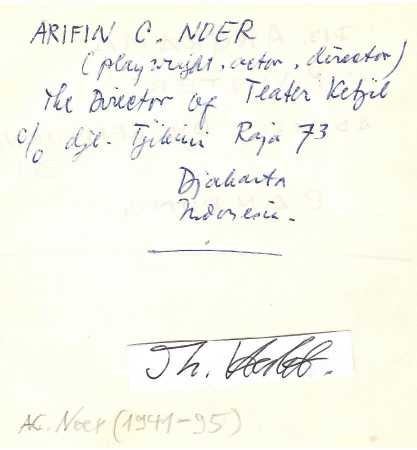 ARIFIN C. NOER
(playwright, actor, director)
The Director of Teater Ketjil
c/o djl. Tjikini Raja 73
Djakarta
Indonesia.
Th.
AC. Noer (1941-95)